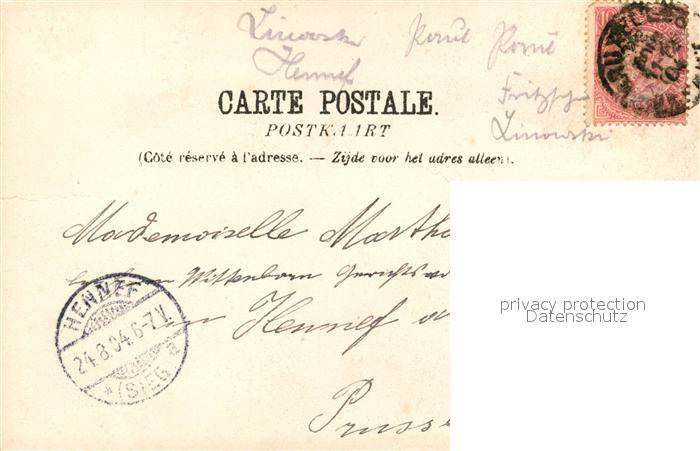 Linowski Paul Paul
Hennef
Fritzsche
Linowski
CARTE POSTALE.
POSTKAART
(Côté réservé à l'adresse. — Zijde voor het adres alleen).
Mademoiselle Martha
Wittenborn Gerichts
Hennef
HENNEF
24.8.04.6-7V.
* (SIEG) a
Pruss
privacy protection
Datenschutz